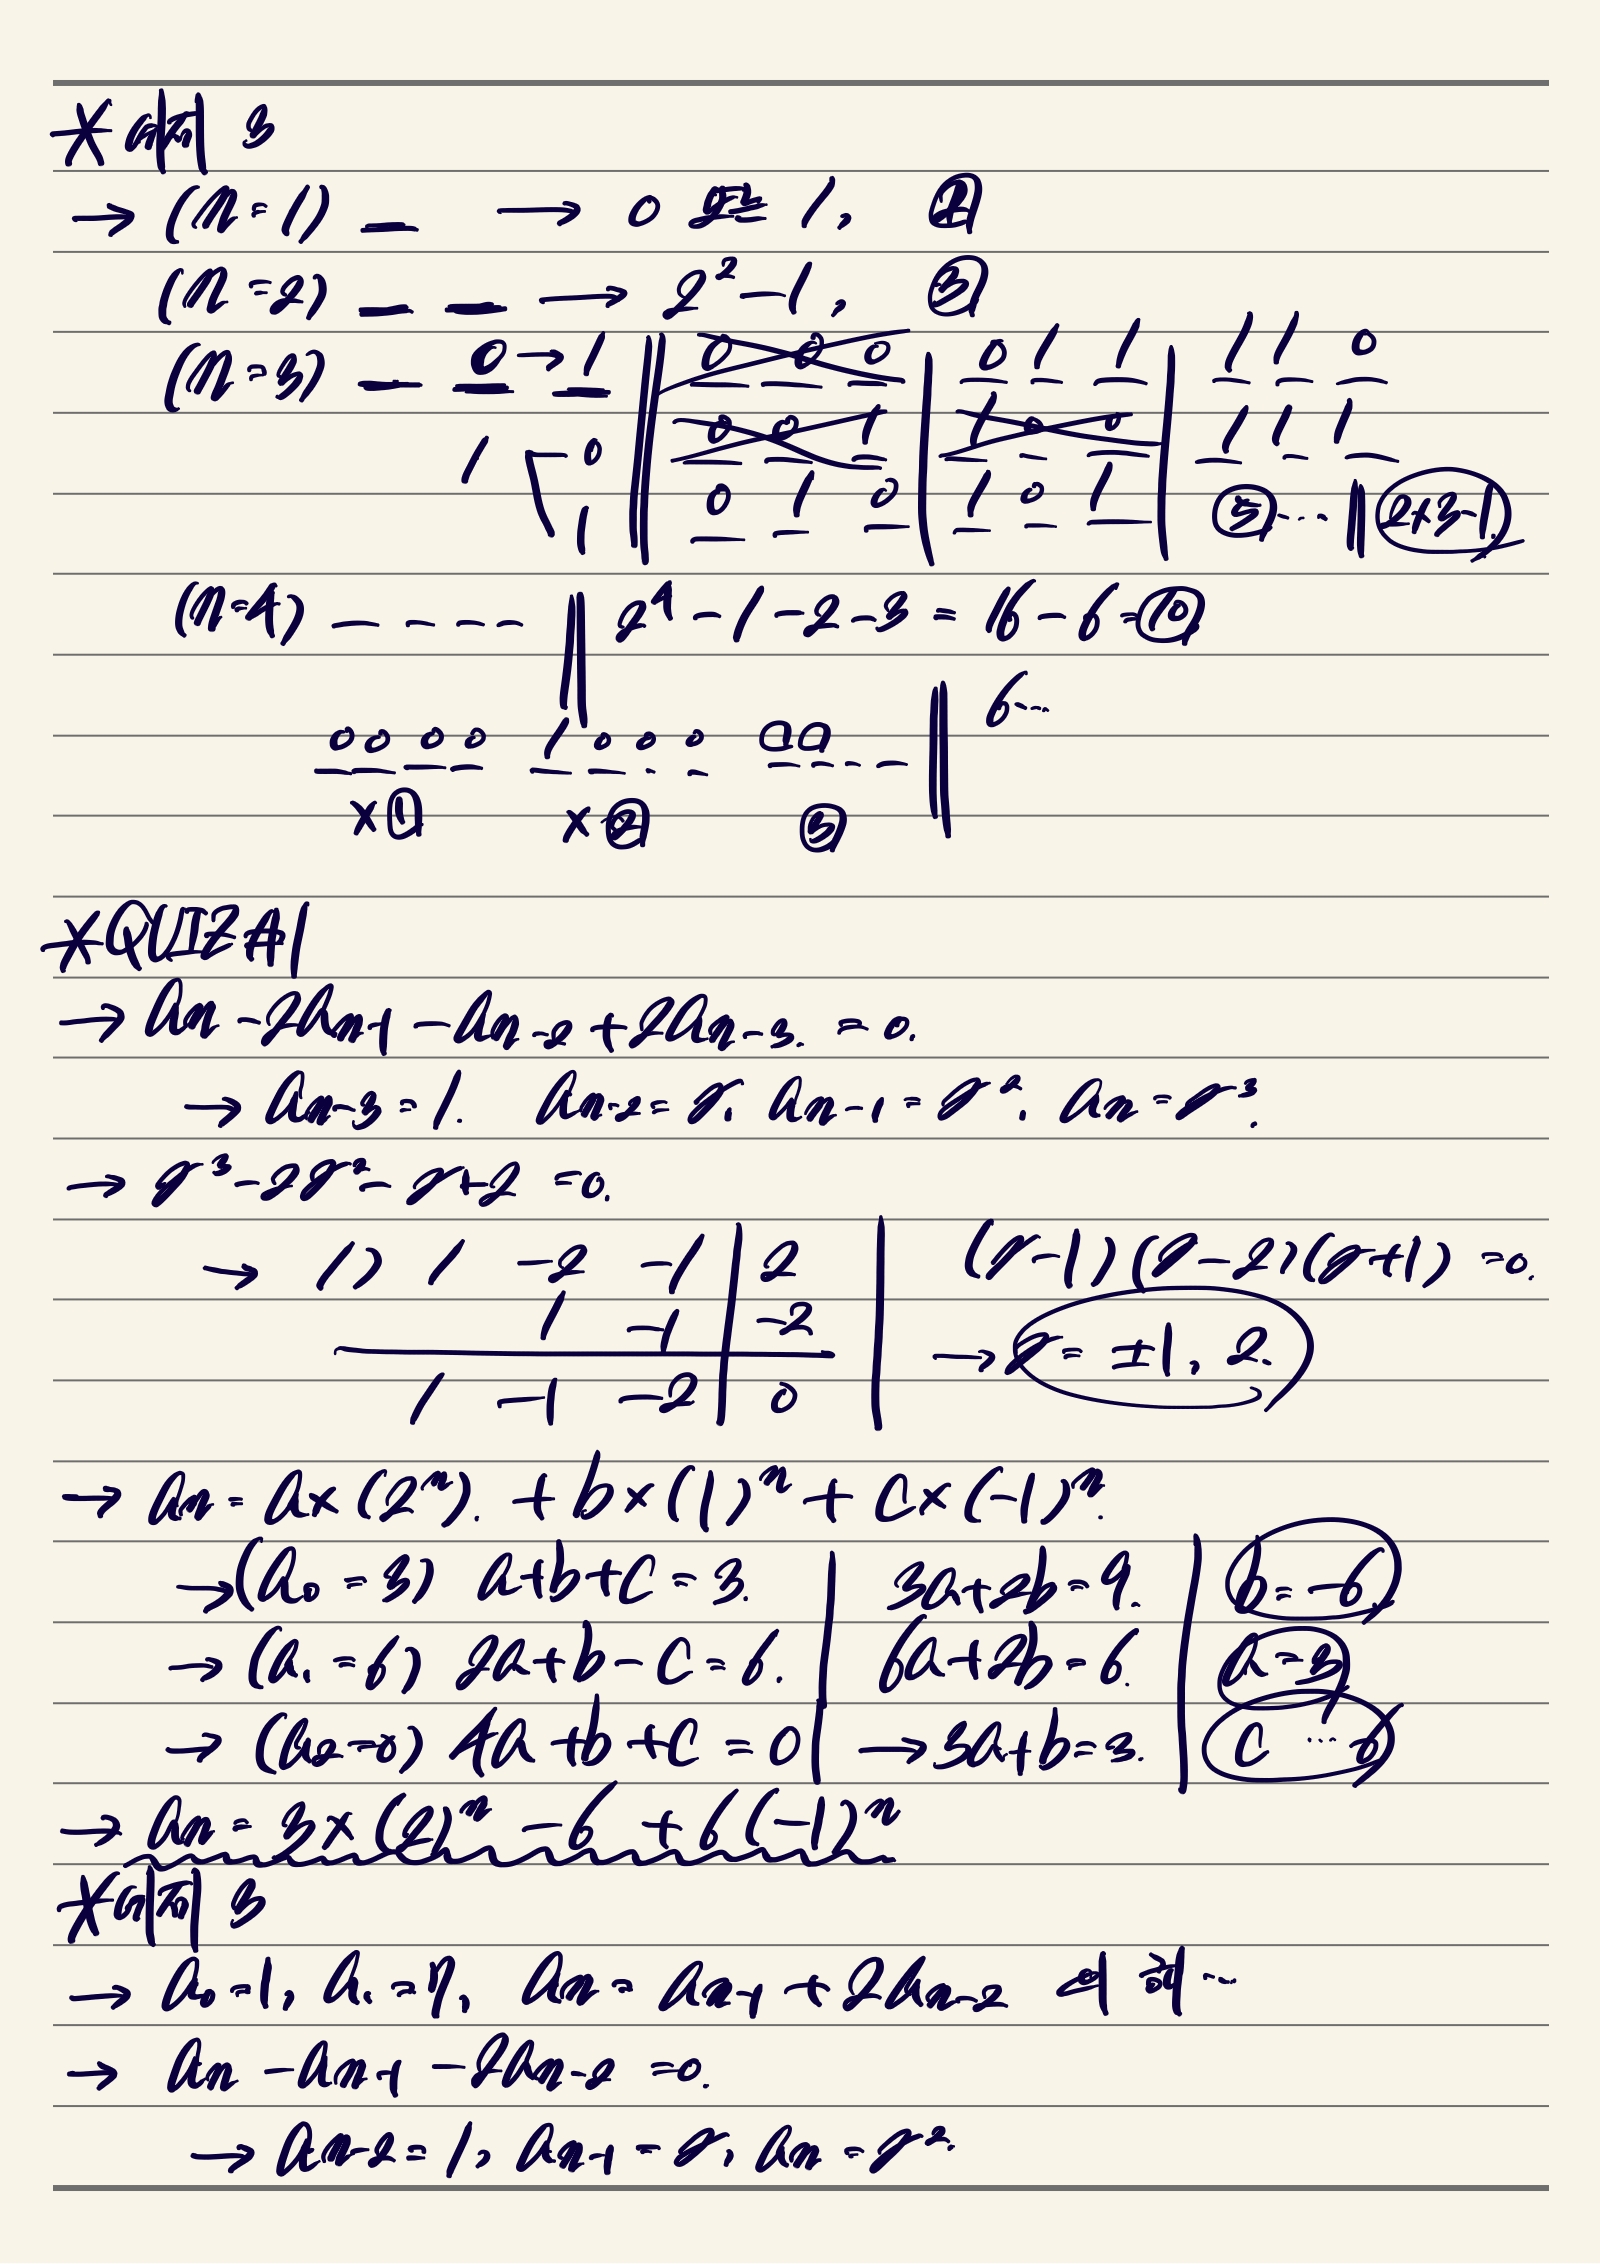 * 예제 3
→ (n=1) _ → 0 또는 1, ②
(n=2) _ _ → 2²-1, ③
(n=3) _ 0→1 || 0 0 0 | 0 1 1 | 1 1 0
1 0 || 0 0 1 | 1 0 0 | 1 1 1
1 || 0 1 0 | 1 0 1 | ⑤ ... || 2×3-1.
(n=4) _ _ _ _ || 2⁴-1-2-3 = 16-6=⑩
0 0 0 0 1 0 0 0 00 _ _ _ _ || 6...
×① ×② ③
* QUIZ 4-1
→ an -2an-1 -an-2 +2an-3. =0.
→ an-3=1. an-2=r, an-1=r², an=r³.
→ r³-2r²-r+2 =0.
→ 1) 1 -2 -1 | 2 | (r-1)(r-2)(r+1) =0.
1 -1 | -2 | → r= ±1, 2.
1 -1 -2 | 0
→ an= a×(2ⁿ). + b×(1)ⁿ + c×(-1)ⁿ.
→ (a₀=3) a+b+c=3. | 3a+2b=9. | b=-6.
→ (a₁=6) 2a+b-c=6. | 6a+2b=6. | a=3
→ (a₂=0) 4a+b+c=0 | → 3a+b=3. | c ... 6
→ an= 3×(2)ⁿ -6 +6(-1)ⁿ
* 예제 3
→ a₀=1, a₁=7, an= an-1 +2an-2 의 해...
→ an -an-1 -2an-2 =0.
→ an-2=1, an-1=r, an=r².